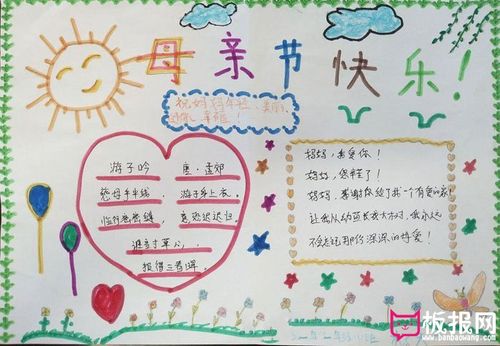 母亲节快乐!
祝妈妈年轻、美丽、
游子吟 唐·孟郊
慈母手中线, 游子身上衣。
临行密密缝, 意恐迟迟归。
谁言寸草心,
报得三春晖。
妈妈, 我爱你!
妈妈, 您辛苦了!
妈妈, 感谢你给了我一个有爱的家!
让我从幼苗长成大树, 我永远
不会忘记那份深深的母爱!
板报网
www.banbaowang.com